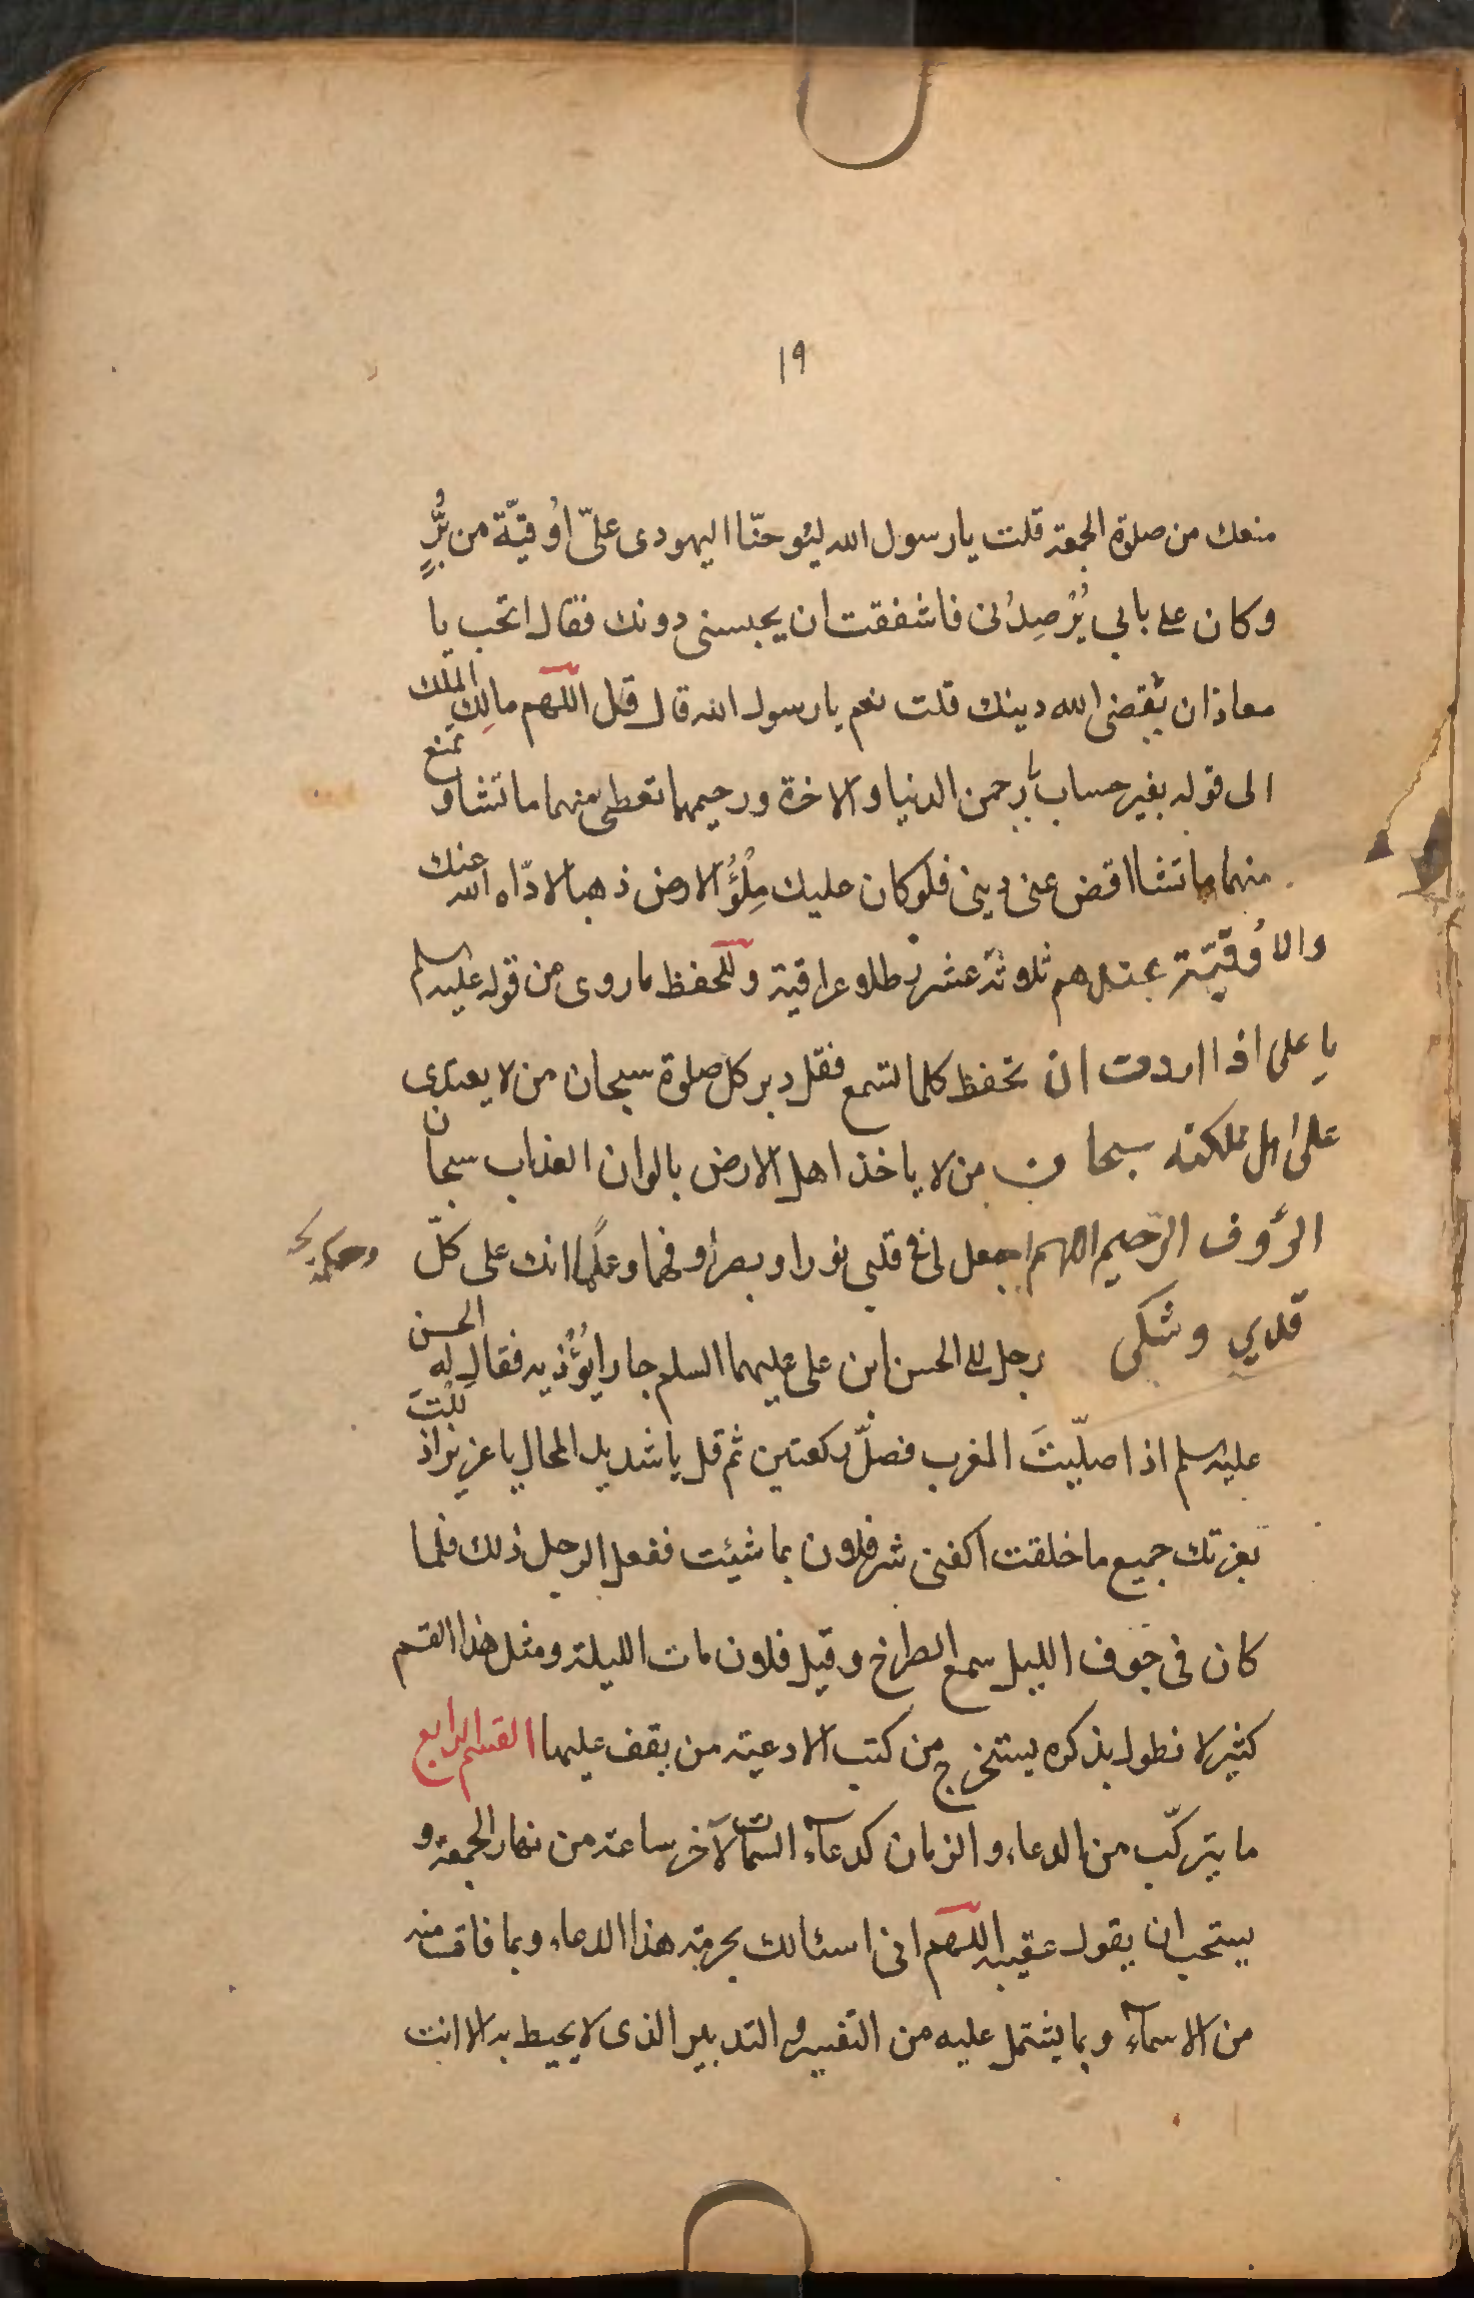 ١٩
منعك من صلوة الجمعة قلت يا رسول الله ليُوحنّا اليهودى علىّ اُوقيّة من بُرٍّ
وكان على بابى يُرْصِدُنى فاشفقت ان يحبسنى دونك فقال اتحب يا
معاذ ان يقضى الله دينك قلت نعم يا رسول الله قال قل اللّهم مالِك الملك
الى قوله بغير حساب يا رحمن الدنيا والاخرة ورحيمهما تعطى منهما ما تشا وتمنع
منهما ما تشا اقض عنى دينى فلو كان عليك مِلْؤُ الارض ذهبا لادّاه الله عنك
والاُوقيّة عندهم ثلوثة عشر رطلا عراقية وللحفظ ما روى من قوله عليه السلم
يا على اذا اردت ان تحفظ كلما تسمع فقل دبر كل صلوة سبحان من لا يعتدى
على اهل مملكته سبحان من لا ياخذ اهل الارض بالوان العذاب سبحان
الرؤف الرّحيم اللهم اجعل لى فى قلبى نورا وبصرا وفهما وعلما انك على كلّ
قدير وشكى رجل الى الحسن ابن على عليهما السلم جارا يُؤْذيه فقال له الحسن
عليه السلم اذا صلّيتَ المغرب فصلّ ركعتين ثم قل يا شديد المحال يا عزيز اذللت
بعزتك جميع ما خلقت اكفنى شر فلون بما شيئت ففعل الرجل ذلك فلما
كان فى جوف الليل سمع الصراخ وقيل فلون مات الليلة ومثل هذا القسم
كثير لا نطول بذكره يستخرج من كتب الادعية من يقف عليها القسم الرابع
ما يتركّب من الدعاء والزمان كدعآء السمات لآخر ساعة من نهار الجمعة و
يستحب ان يقول عقيبه اللّهم انى اسئالك بحرمة هذا الدعاء وبما فات منه
من الاسمآء وبما يشتمل عليه من التفسير والتدبير الذى لا يحيط به الا انت